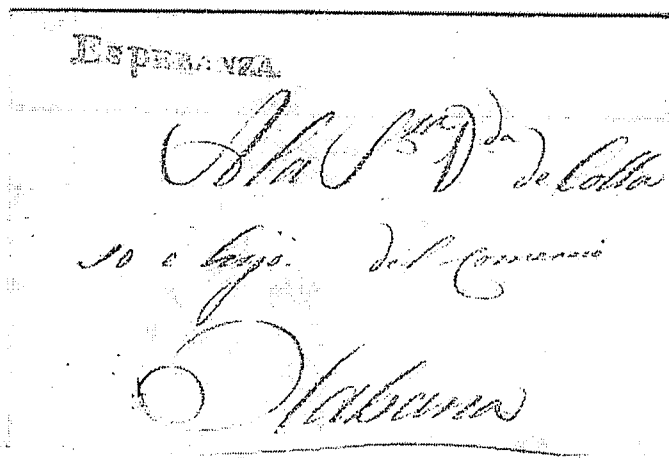 ESPERANZA
A la S.ra V.da de Colla
so e hijo del Comercio
Habana